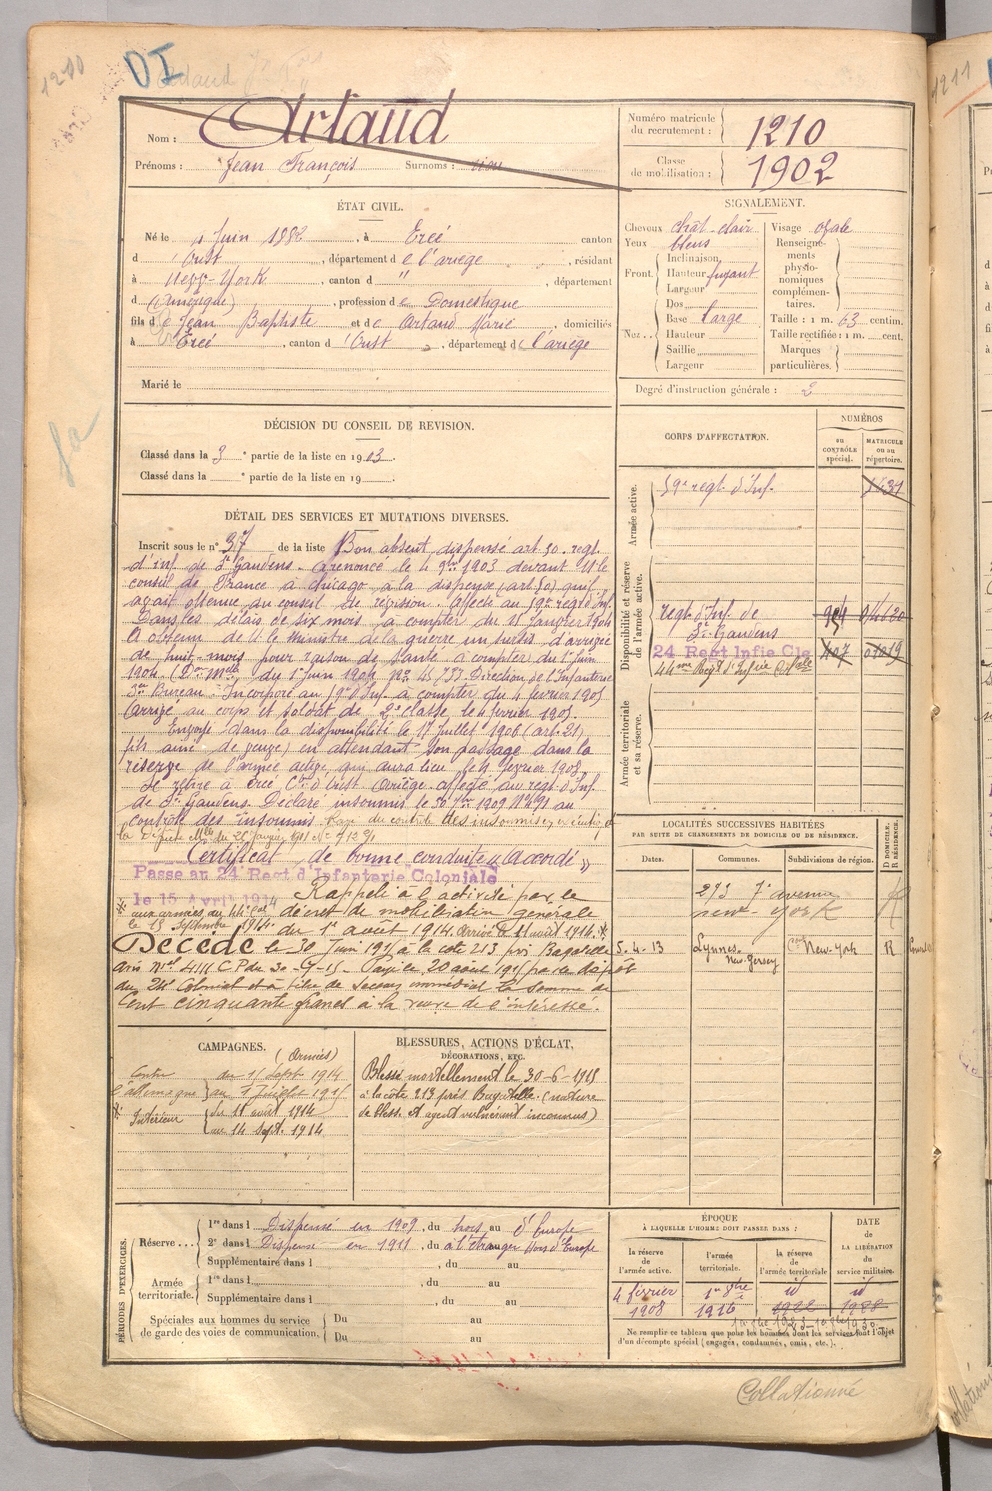 1210
DI
Nom : Artaud
Prénoms : Jean François Surnoms : non
Numéro matricule du recrutement : 1210
Classe de mobilisation : 1902
ÉTAT CIVIL.
Né le Juin 1882, à Ercé canton
d'Oust, département de l'ariège, résidant
à New-York, canton d " , département
d (amérique), profession de Domestique
fils de Jean Baptiste et de Artaud Marie, domiciliés
à Ercé, canton d'Oust, département de l'ariège
Marié le
SIGNALEMENT.
Cheveux chât-clair
Yeux bleus
Front. Inclinaison
Hauteur fuyant
Largeur
Nez. Dos
Base large
Hauteur
Saillie
Largeur
Visage ovale
Renseignements physionomiques complémentaires.
Taille : 1 m. 63 centim.
Taille rectifiée : 1 m. cent.
Marques particulières.
Degré d'instruction générale : 2
DÉCISION DU CONSEIL DE REVISION.
Classé dans la 3e partie de la liste en 1903.
Classé dans la e partie de la liste en 19
CORPS D'AFFECTATION.
NUMÉROS
au CONTRÔLE spécial.
MATRICULE ou au répertoire.
Armée active.
59e regt d'Inf.
Disponibilité et réserve de l'armée active.
regt d'Inf. de
St-Gaudens
24 Regt Infie Cle
44me Regt d'Infie Colale
Armée territoriale et sa réserve.
DÉTAIL DES SERVICES ET MUTATIONS DIVERSES.
Inscrit sous le n° 37 de la liste Bon absent, dispensé art. 50. regt
d'inf. de St Gaudens. a renoncé le 4 9bre 1903 devant M. le
consul de France à chicago à la dispense (art. 50) qu'il
avait obtenue du conseil de révision. affecté au 59e regt d'Inf.
Dans les délais de six mois à compter du 21 Janvier 1904
a obtenu de M. le ministre de la guerre un sursis d'arrivée
de huit mois pour raison de santé à compter du 1er juin
1904. du 1er juin 1904 Direction de l'Infanterie
3me Bureau. Incorporé au 59e d'Inf. à compter du 4 février 1905
arrivé au corps et soldat de 2e classe le 4 février 1905.
Envoyé dans la disponibilité le 17 juillet 1906 (art. 21
fils aîné de veuve) en attendant son passage dans la
réserve de l'armée active qui aura lieu le 4 février 1908.
Se retire à Ercé Con d'Oust Ariège. affecté au regt d'Inf.
de St Gaudens. Déclaré insoumis le 30 1909 au
contrôle des insoumis. Rayé du contrôle des insoumis
Certificat de bonne conduite "Accordé"
Passé au 24e Regt d'Infanterie Coloniale
le 15 Avril 1914
Rappelé à l'activité par le
décret de mobilisation générale
du 1er août 1914. Arrivé le 11 août 1914.
* aux armées au 44e Cal
le 15 septembre 1914.
Décédé le 30 Juin 1915 à la côte 213 près Bagatelle
avis Payé le 20 août 1915 par le dépôt
du 24e Colonial et à titre de secours immédiat la somme de
Cent cinquante francs à la veuve de l'intéressé.
LOCALITÉS SUCCESSIVES HABITÉES
PAR SUITE DE CHANGEMENTS DE DOMICILE OU DE RÉSIDENCE.
Dates.
Communes.
Subdivisions de région.
D DOMICILE.
R RÉSIDENCE.
273 7e avenue
new-york
R
5.4.13 Lynnes. New-Jersey New-York R
CAMPAGNES.
(Armées)
Contre l'allemagne
du 15 Sept 1914
au 1 Juillet 1915
* Intérieur
du 11 août 1914
au 14 Sept. 1914
BLESSURES, ACTIONS D'ÉCLAT,
DÉCORATIONS, ETC.
Blessé mortellement le 30-6-1915
à la côte 213 près Bagatelle. (nature
de blesse et agent vulnérant inconnus)
PÉRIODES D'EXERCICES.
Réserve...
1re dans l Dispensé en 1909, du hors au d'Europe
2e dans l Dispensé en 1911, du à l'étranger hors d'Europe
Supplémentaire dans l , du au
Armée territoriale.
1re dans l , du au
Supplémentaire dans l , du au
Spéciales aux hommes du service de garde des voies de communication.
Du au
Du au
ÉPOQUE
À LAQUELLE L'HOMME DOIT PASSER DANS :
la réserve de l'armée active.
l'armée territoriale.
la réserve de l'armée territoriale
DATE DE LA LIBÉRATION du service militaire.
4 février 1908
1er 8bre 1916
id 1922
id 1928
Ne remplir ce tableau que pour les hommes dont les services font l'objet
d'un décompte spécial (engagés, condamnés, omis, etc.).
Collationné
1211